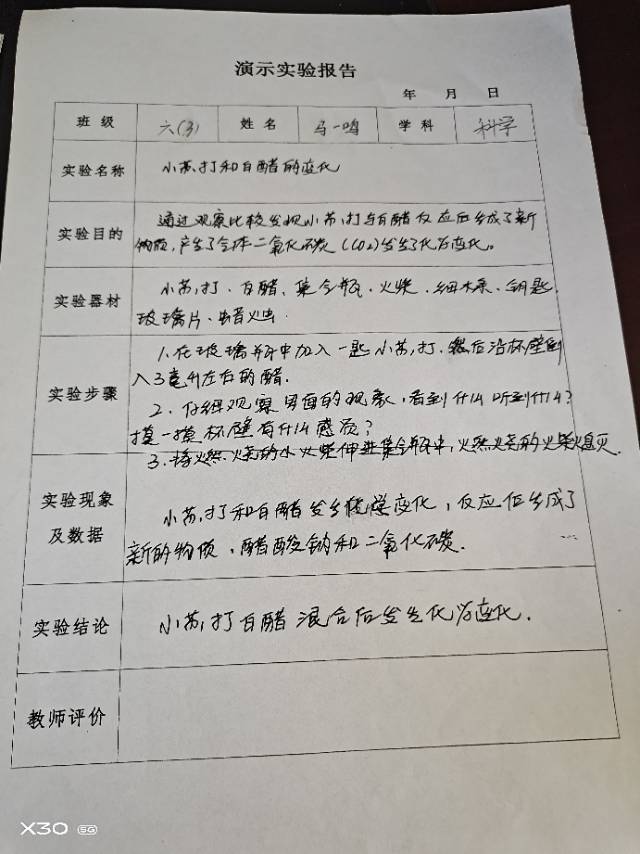 演示实验报告
年 月 日
班级 六(3) 姓名 马一鸣 学科 科学
实验名称 小苏打和白醋的变化
实验目的 通过观察比较发现小苏打与白醋反应后生成了新
物质,产生了气体二氧化碳(CO2)发生了化学变化。
实验器材 小苏打、白醋、集气瓶、火柴、细木条、钥匙
玻璃片、蜡烛
实验步骤 1.在玻璃瓶中加入一匙小苏打,然后沿杯壁倒
入3毫升左右的醋.
2.仔细观察里面的现象,看到什么听到什么?
摸一摸杯壁有什么感觉?
3.将燃烧的火柴伸进集气瓶中,燃烧的火柴熄灭.
实验现象及数据 小苏打和白醋发生化学变化,反应后生成了
新的物质,醋酸钠和二氧化碳.
实验结论 小苏打白醋混合后发生化学变化.
教师评价
X30 5G